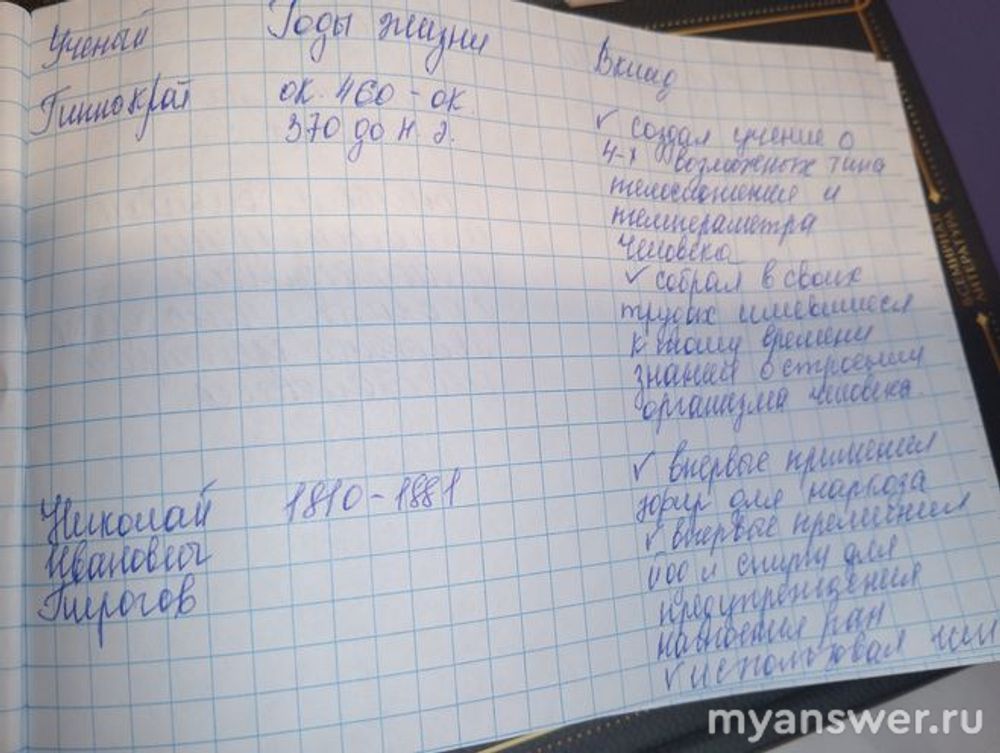 Ученый Годы жизни Вклад
Гиппократ ок. 460 - ок.
370 до н. э.
✓ создал учение о
4-х возможных типа
телосложение и
темпераметра
человека
✓ собрал в своих
трудах имевшиеся
к тому времени
знания о строении
организма человека.
Николай 1810 - 1881
Иванович
Пирогов
✓ впервые применил
эфир для наркоза
✓ впервые применил
йод и спирт для
предупреждения
нагноения ран
✓ использовал
ВСЕМИРНАЯ
ЛИТЕРАТУРА
myanswer.ru